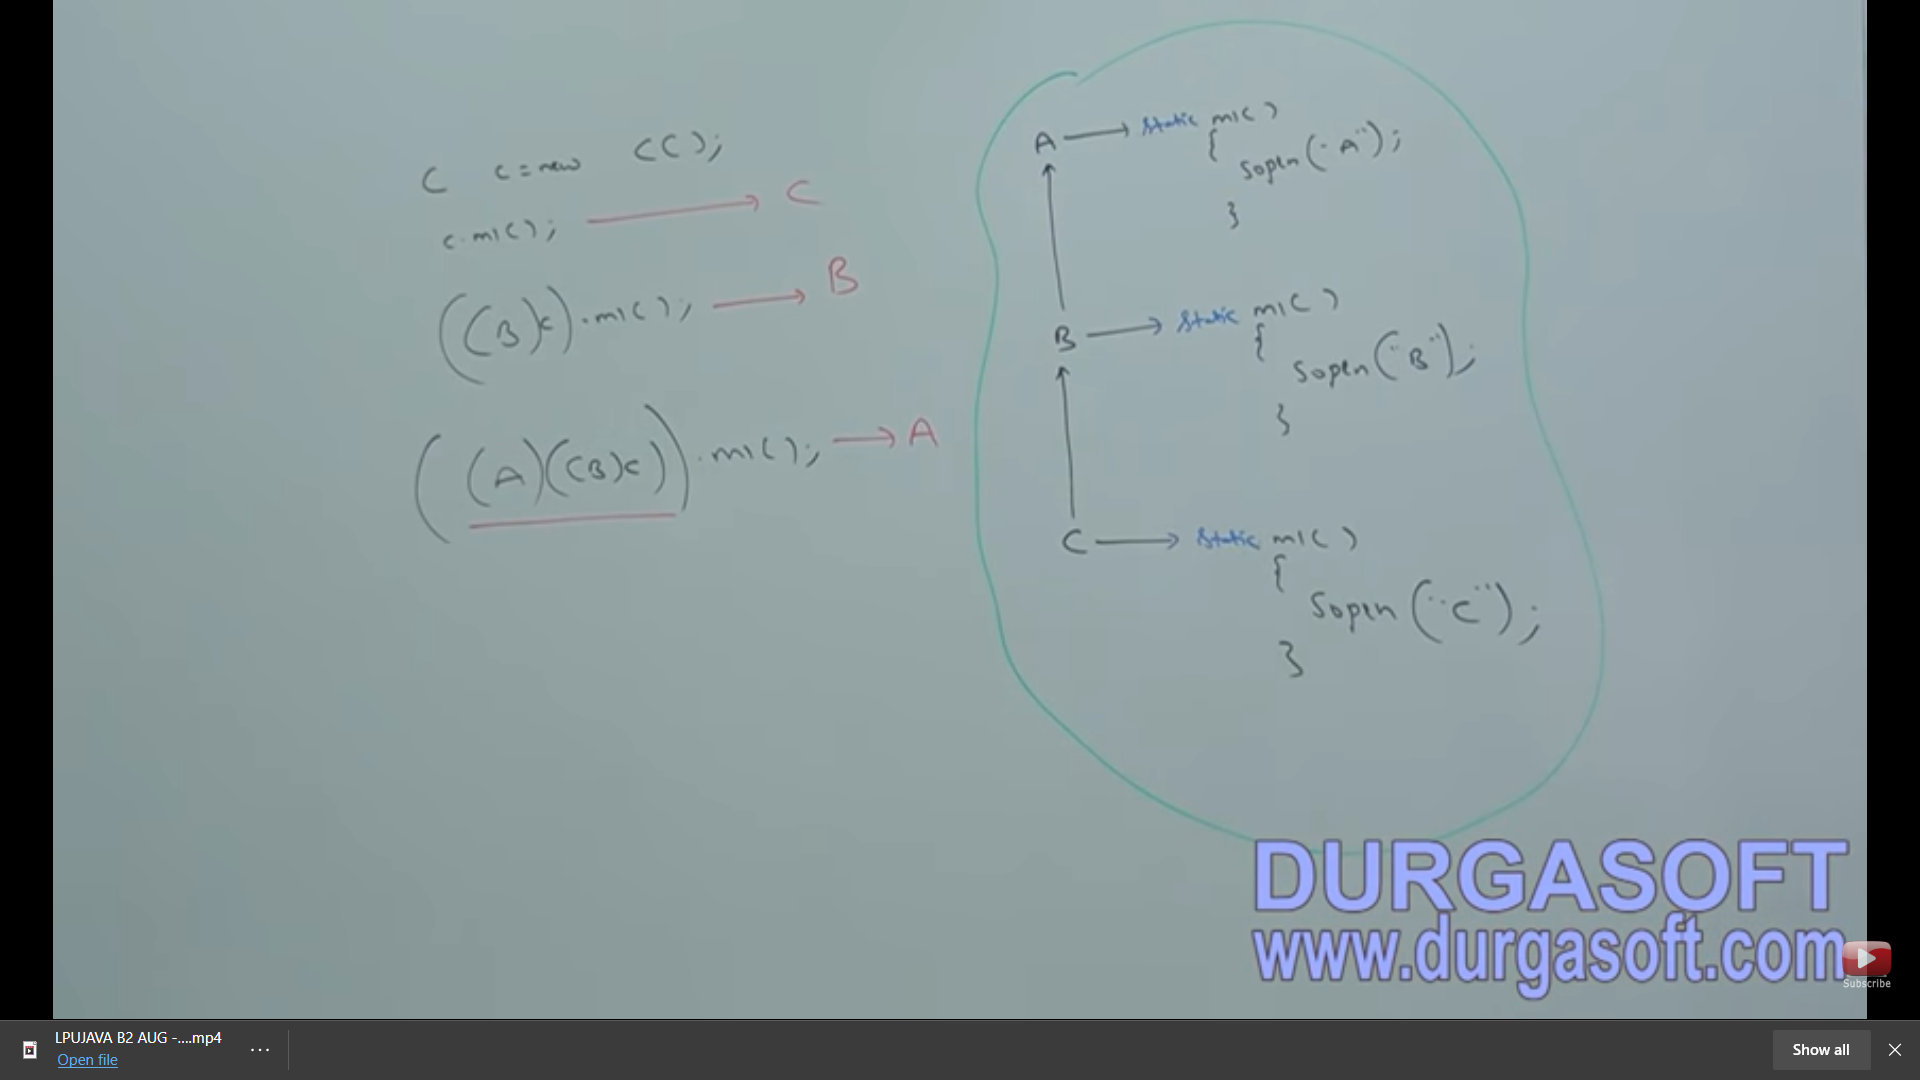 C c = new C();
c.m1(); → C
((B)c).m1(); → B
((A)((B)c)).m1(); → A
A → static m1()
{
Sopln("A");
}
B → static m1()
{
Sopln("B");
}
C → static m1()
{
Sopln("C");
}
DURGASOFT
www.durgasoft.com
Subscribe
LPUJAVA B2 AUG -....mp4
Open file
...
Show all